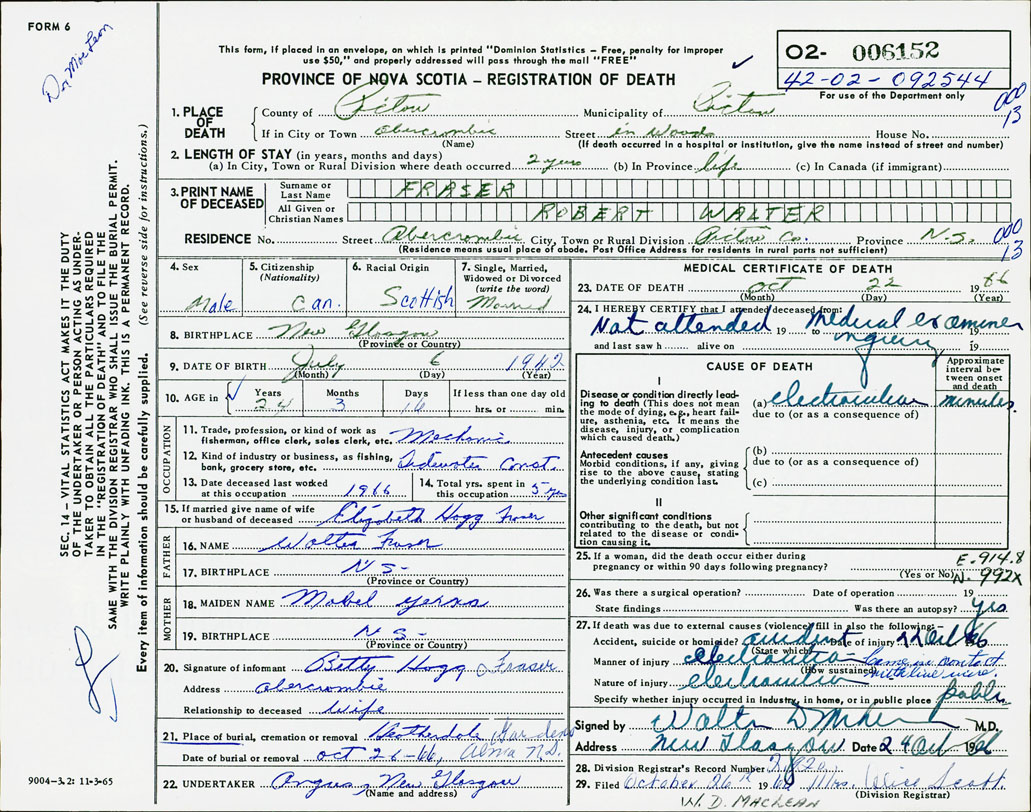 FORM 6
Dr. MacLeon
This form, if placed in an envelope, on which is printed "Dominion Statistics – Free, penalty for improper
use $50," and properly addressed will pass through the mail "FREE"
PROVINCE OF NOVA SCOTIA – REGISTRATION OF DEATH
02- 006152
42-02-092544
For use of the Department only
000
13
1. PLACE OF DEATH
County of Pictou Municipality of Pictou
If in City or Town Abercrombie Street in Woods House No.
(Name) (If death occurred in a hospital or institution, give the name instead of street and number)
2. LENGTH OF STAY (in years, months and days)
(a) In City, Town or Rural Division where death occurred 2 years (b) In Province life (c) In Canada (if immigrant)
3. PRINT NAME OF DECEASED
Surname or Last Name FRASER
All Given or Christian Names ROBERT WALTER
RESIDENCE No. Street Abercrombie City, Town or Rural Division Pictou Co. Province N.S.
(Residence means usual place of abode. Post Office Address for residents in rural parts not sufficient)
000
13
4. Sex Male
5. Citizenship (Nationality) Can.
6. Racial Origin Scottish
7. Single, Married, Widowed or Divorced (write the word) Married
8. BIRTHPLACE New Glasgow
(Province or Country)
9. DATE OF BIRTH July 6 1942
(Month) (Day) (Year)
10. AGE in Years 24 Months 3 Days 16 If less than one day old hrs. or min.
OCCUPATION
11. Trade, profession, or kind of work as fisherman, office clerk, sales clerk, etc. Mechanic
12. Kind of industry or business, as fishing, bank, grocery store, etc. Tidewater Const.
13. Date deceased last worked at this occupation 1966
14. Total yrs. spent in this occupation 5 yrs
15. If married give name of wife or husband of deceased Elizabeth Hogg Fraser
FATHER
16. NAME Walter Fraser
17. BIRTHPLACE N S -
(Province or Country)
MOTHER
18. MAIDEN NAME Mabel
19. BIRTHPLACE N S -
(Province or Country)
20. Signature of informant Betty Hogg Fraser
Address Abercrombie
Relationship to deceased Wife
21. Place of burial, cremation or removal Heatherdale Gardens
Date of burial or removal Oct 26-66, Alma N.S.
22. UNDERTAKER Angus, New Glasgow
(Name and address)
MEDICAL CERTIFICATE OF DEATH
23. DATE OF DEATH Oct 22 1966
(Month) (Day) (Year)
24. I HEREBY CERTIFY that I attended deceased from:
Not attended 19 to Medical examiner
and last saw h alive on inquiry 19
CAUSE OF DEATH
Approximate interval between onset and death
I
Disease or condition directly leading to death (This does not mean the mode of dying, e.g., heart failure, asthenia, etc. It means the disease, injury, or complication which caused death.)
(a) electrocution minutes
due to (or as a consequence of)
Antecedent causes
Morbid conditions, if any, giving rise to the above cause, stating the underlying condition last.
(b)
due to (or as a consequence of)
(c)
II
Other significant conditions
contributing to the death, but not related to the disease or condition causing it.
25. If a woman, did the death occur either during pregnancy or within 90 days following pregnancy?
(Yes or No)
E.914.8
N. 992X
26. Was there a surgical operation? Date of operation 19
State findings Was there an autopsy? yes
27. If death was due to external causes (violence) fill in also the following:-
Accident, suicide or homicide? accident Date of injury 22 Oct 66
(State which)
Manner of injury electrocution – Came in contact with live wire.
(How sustained)
Nature of injury electrocution
Specify whether injury occurred in industry, in home, or in public place public
Signed by Walter D M.D.
Address New Glasgow Date 24 Oct 1966
28. Division Registrar's Record Number
29. Filed October 26th 1966 Mrs. Alice Scott
(Division Registrar)
W. D. MACLEAN
SEC. 14 – VITAL STATISTICS ACT MAKES IT THE DUTY
OF THE UNDERTAKER OR PERSON ACTING AS UNDER-
TAKER TO OBTAIN ALL THE PARTICULARS REQUIRED
IN THE "REGISTRATION OF DEATH" AND TO FILE THE
SAME WITH THE DIVISION REGISTRAR WHO SHALL ISSUE THE BURIAL PERMIT.
WRITE PLAINLY WITH UNFADING INK. THIS IS A PERMANENT RECORD.
Every item of information should be carefully supplied. (See reverse side for instructions.)
9004-3.2: 11-3-65